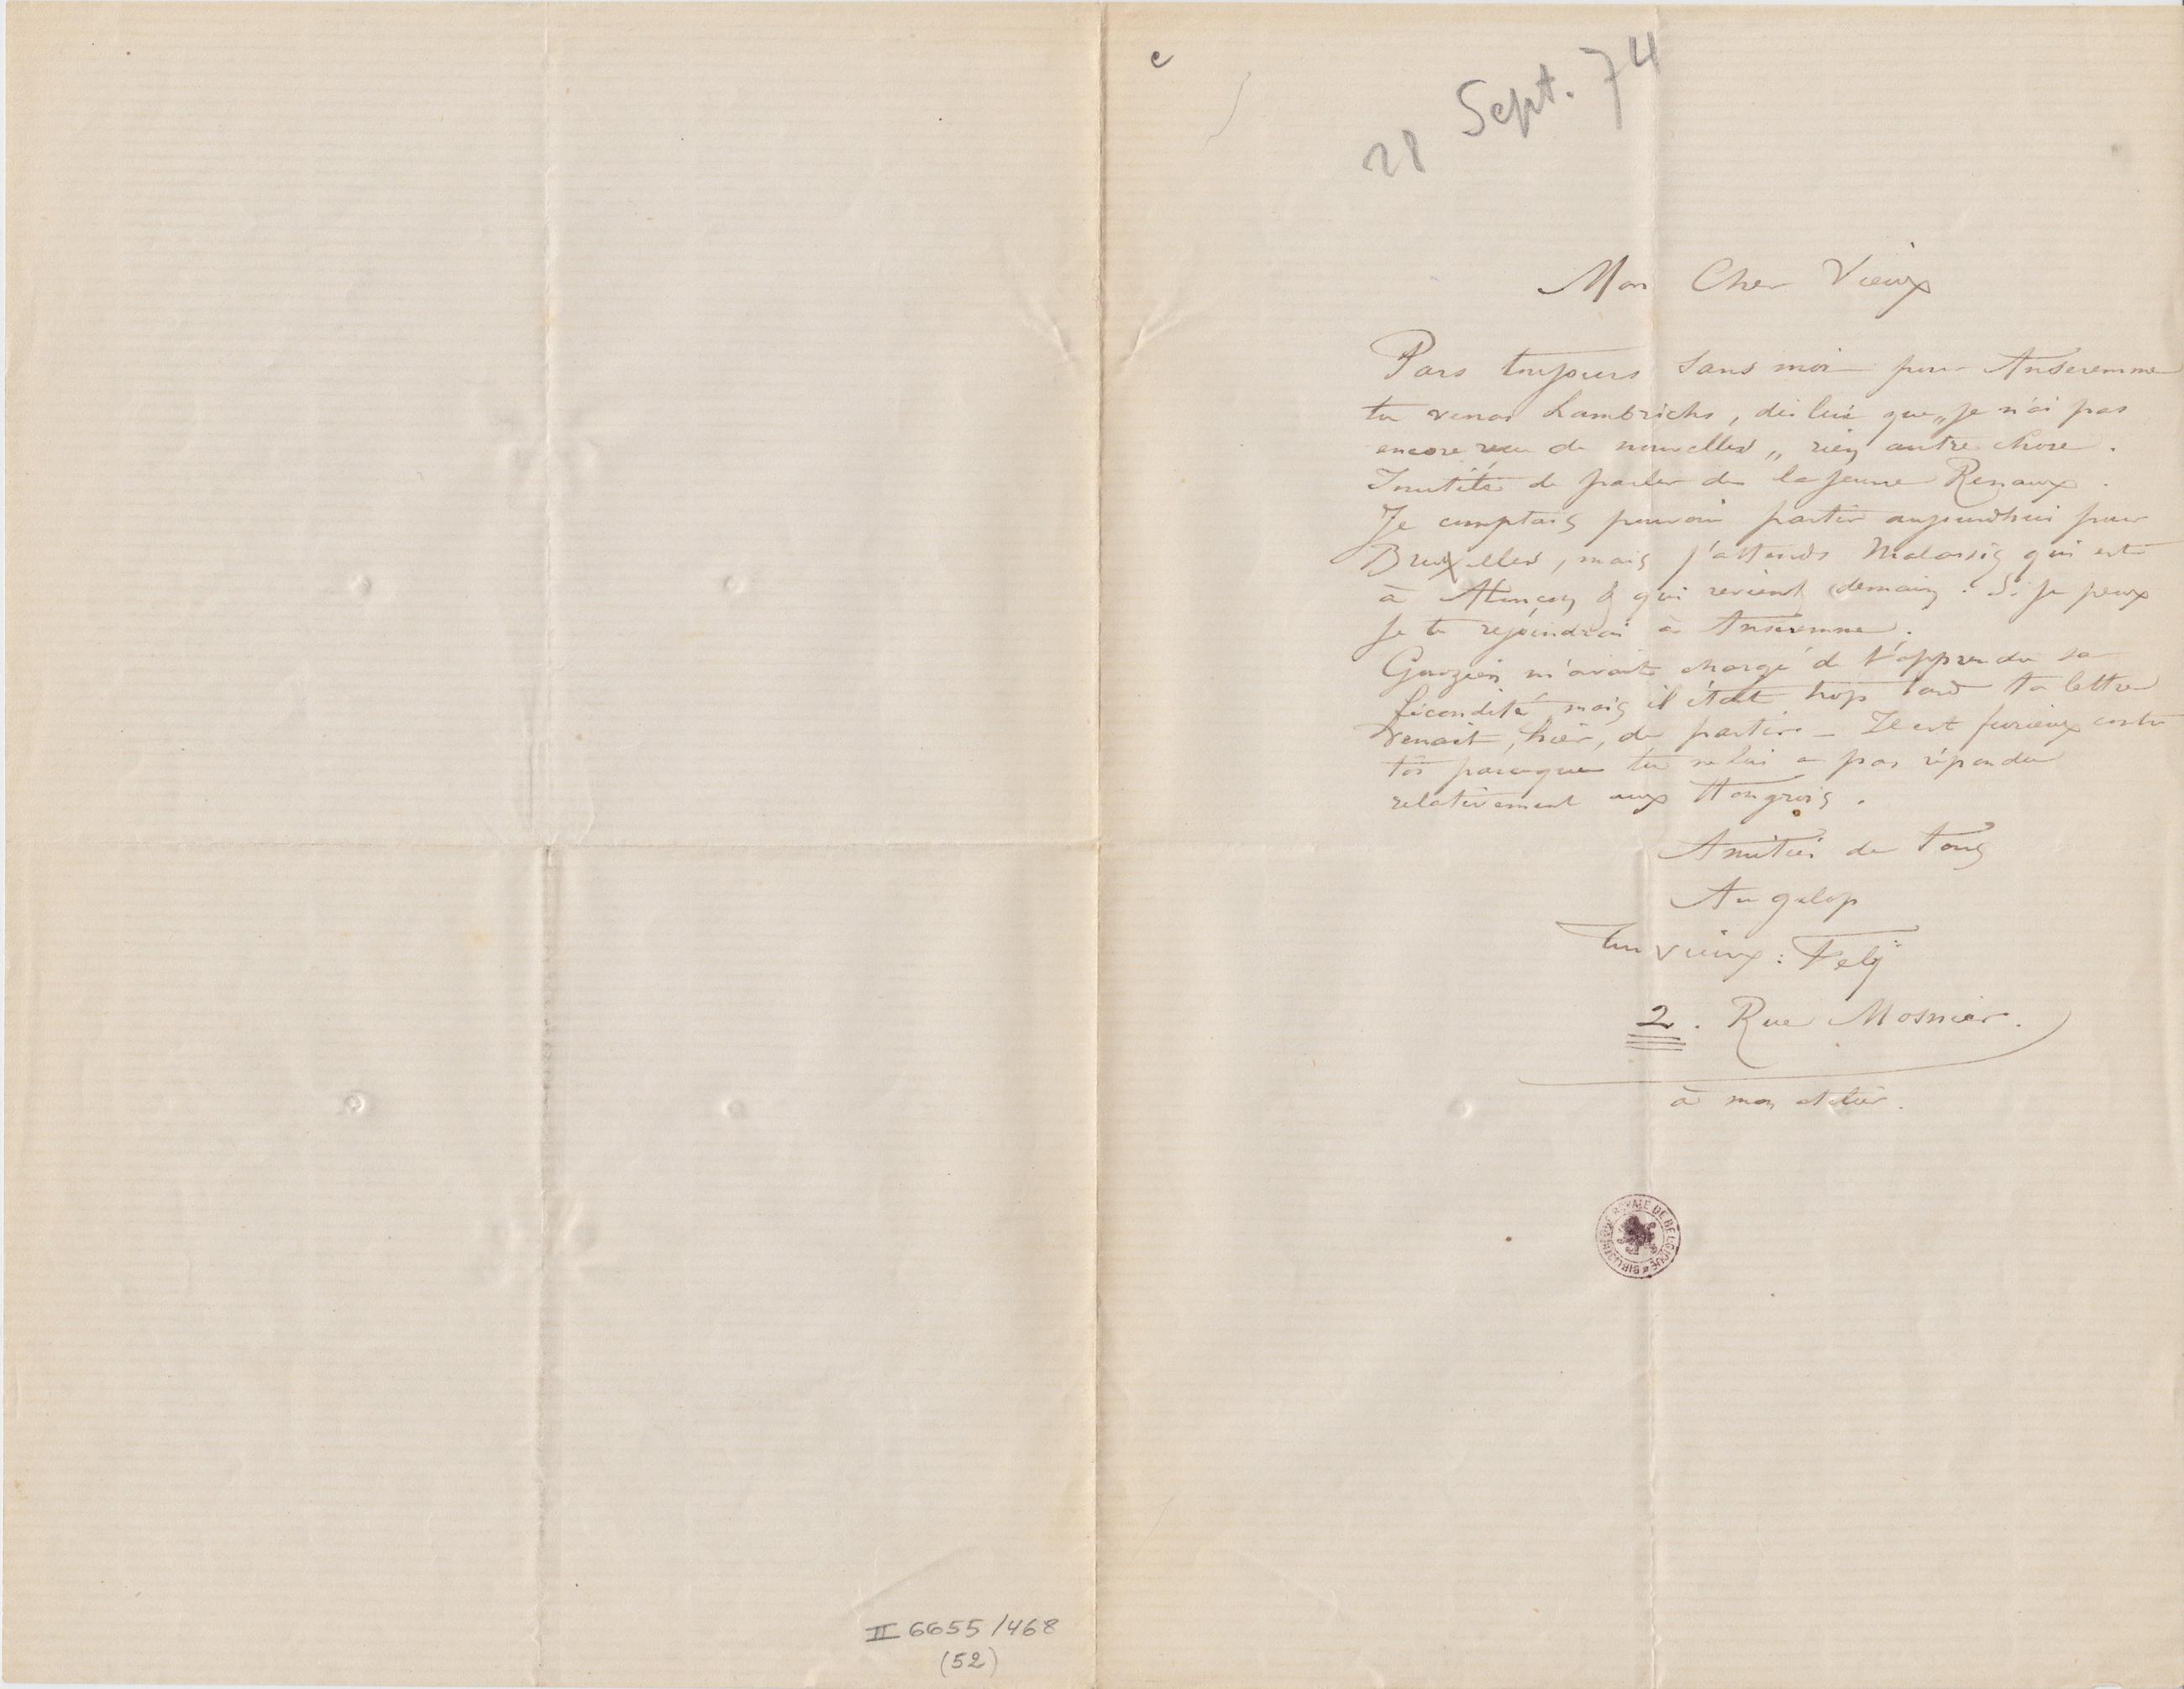 28 Sept. 74
Mon Cher Vieux
Pars toujours sans moi pour Anseremme
tu verras Lambrichs, dis lui que „je n'ai pas
encore reçu de nouvelles„ rien autre chose.
Inutile de parler de la jeune Renaux.
Je comptais pouvoir partir aujourdhui pour
Bruxelles, mais j'attends Malassis qui est
à Alençon & qui revient demain. Si je peux
je te rejoindrai à Anseremme.
Gouzien m'avait chargé de t'apprendre sa
fécondité mais il était trop tard ta lettre
venait, hier, de partir – Il est furieux contre
toi parceque tu ne lui a pas répondu
relativement aux Hongrois.
Amitiés de Tous
Au galop
Ton vieux: Fely
2. Rue Mosnier.
à mon atelier.
BIBLIOTHÈQUE ROYALE DE BELGIQUE
II 6655/468
(52)